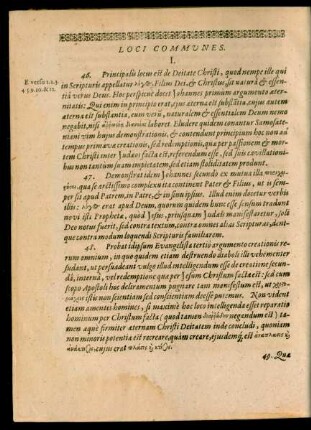 LOCI COMMUNES.
I.
46. Principalis locus est de Deitate Christi, quod nempe ille qui
in Scripturis appellatur λόγος, Filius Dei, & Christus, sit naturâ & essen-
tiâ verus Deus. Hoc perspicuè docet Johannes primùm argumento æter-
nitatis: Qui enim in principio erat, ejus æterna est substantia, cujus autem
æterna est substantia, eum verū, naturalem & essentialem Deum nemo
negabit, nisi homo laboret. Eludere quidem conantur Samosate-
niani vim hujus demonstrationis, & contendunt principium hoc non ad
tempus primævæ creationis, sed redemptionis, quæ per passionem & mor-
tem Christi inter Judæos facta est, referendum esse, sed suis cavillationi-
bus non tantùm suam impietatem, sed etiam stoliditatem produnt.
47. Demonstrat idem Johannes secundò ex
quia se arctissimo complexu ita continent Pater & Filius, ut is sem-
per sit apud Patrem, in Patre, & in sinu ipsius. Illud enim docetur verbis
illis: λόγος erat apud Deum, quorum quidem hunc esse sensum tradunt
novi isti Prophetæ, quòd Jesus, priusquam Judæis manifestaretur, soli
Deo notus fuerit, sed contra textum, contra omnes alias Scripturas, deni-
que contra modum loquendi Scripturis familiarem.
48. Probat id ipsum Evangelista tertiò argumento creationis re-
rum omnium, in quo quidem etiam destruendo diaboli illi vehementer
sudant, ut persuadeant vulgo illud intelligendum esse de creatione secun-
dâ, internâ, vel redemptione quæ per Jesum Christum facta est: sed cum
scopo Apostoli hoc deliramentum pugnare tam manifestum est, ut
isti non scientiam sed conscientiam deesse putemus. Non vident
etiam amentes homines, si maximè hoc loco intelligenda esset reparatio
hominum per Christum facta (quod tamen negandum est) ta-
men æquè firmiter æternam Christi Deitatem inde concludi, quoniam
non minoris potentiæ est recreare, quàm creare,
49. Quæ